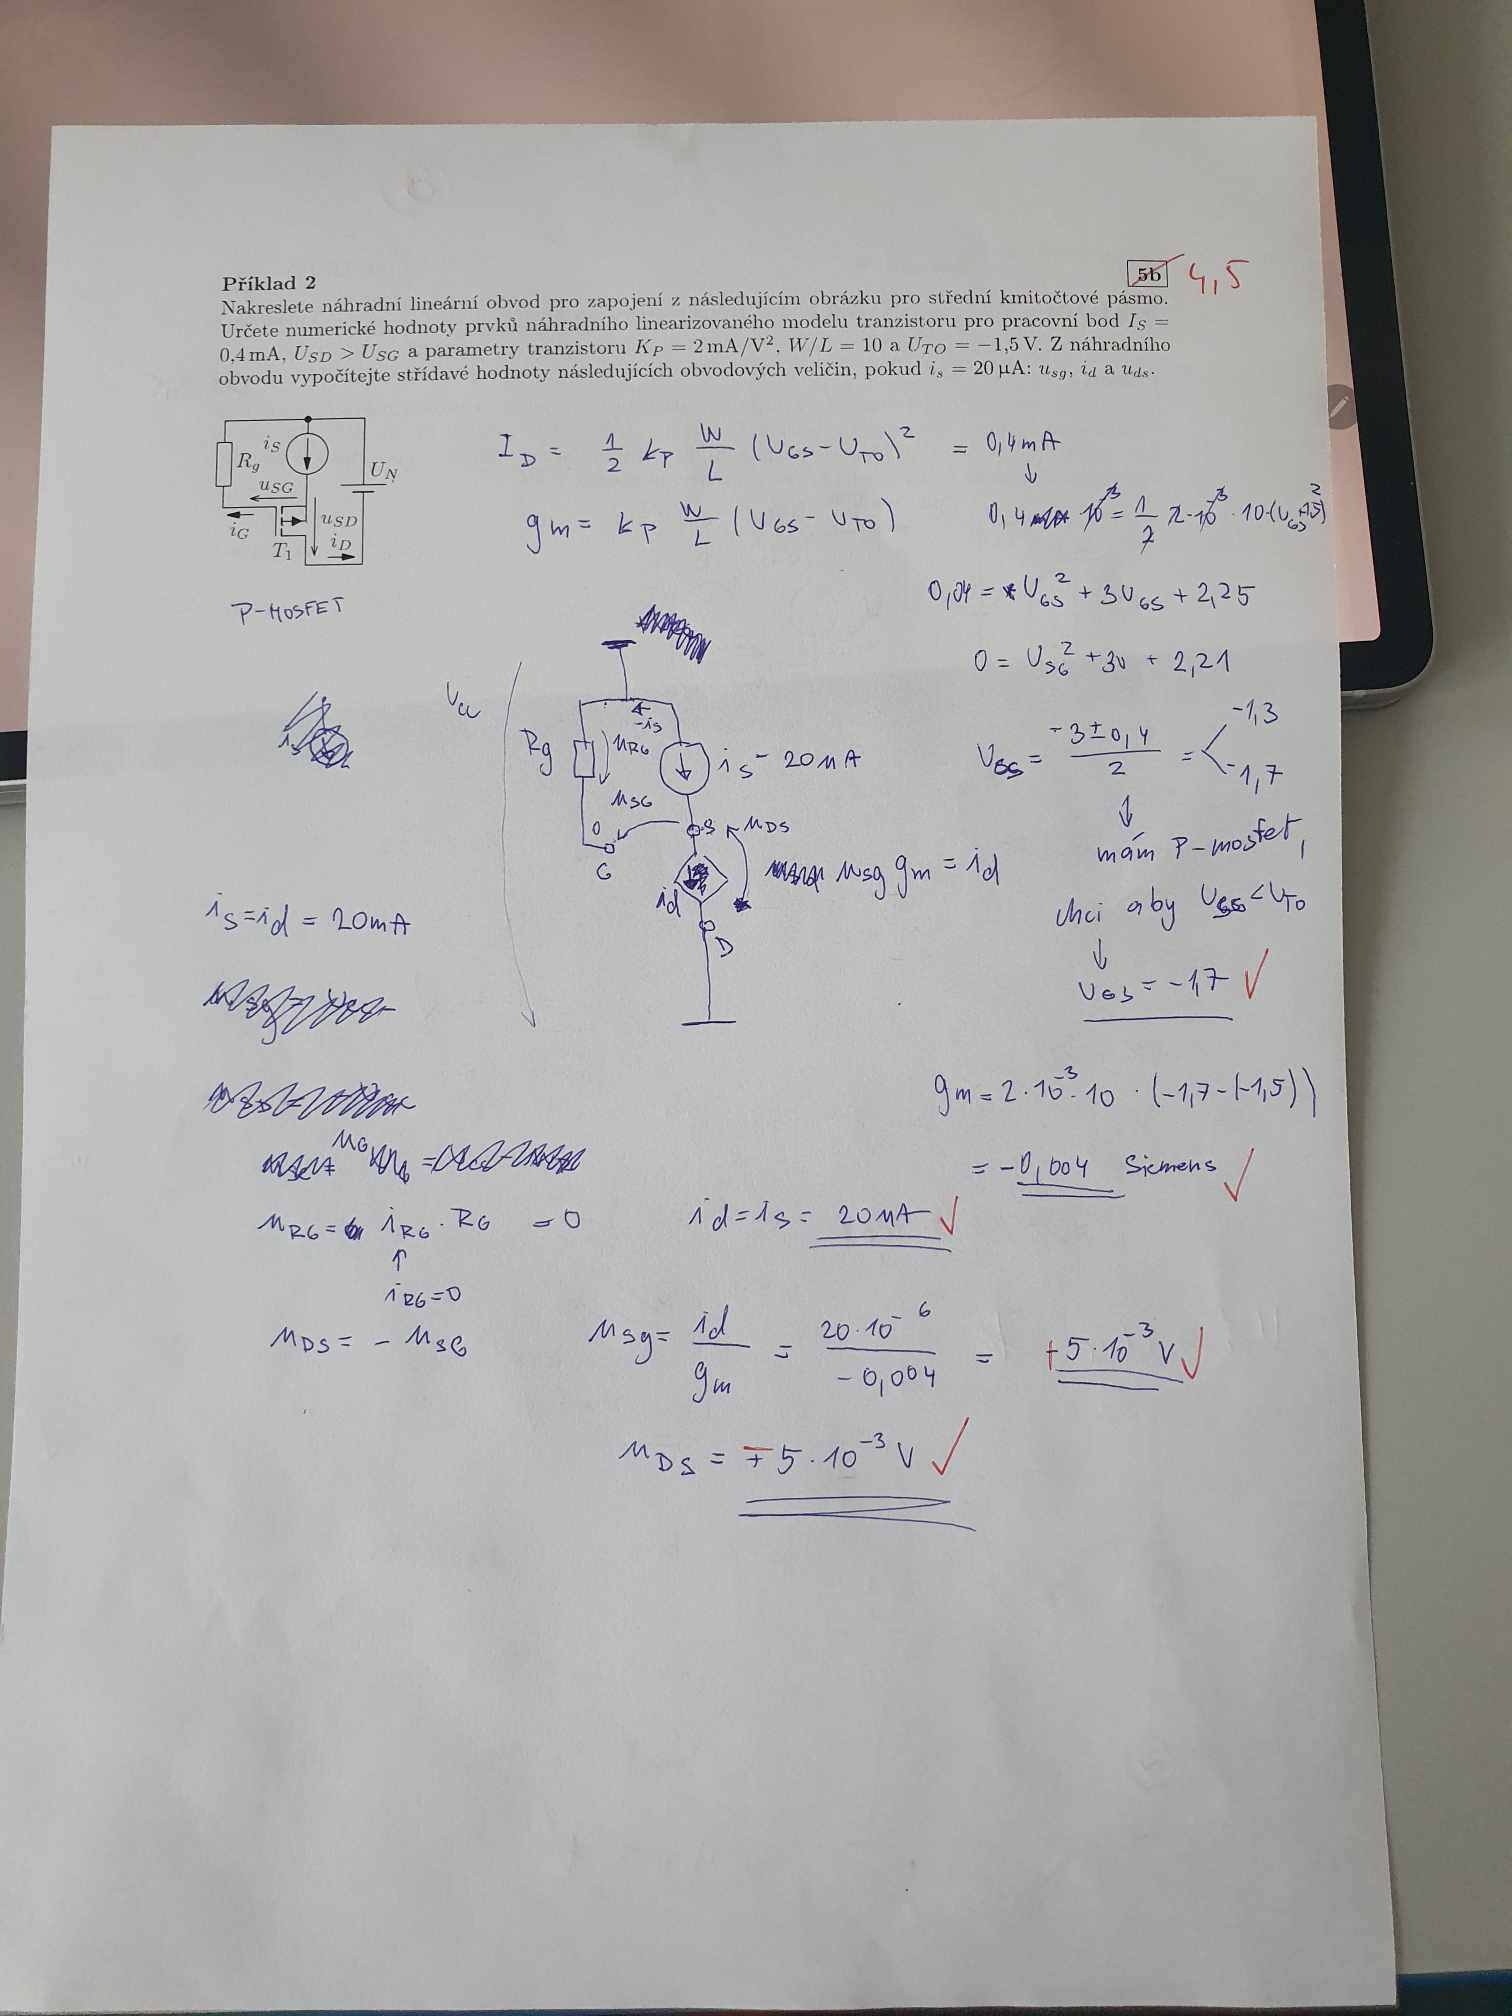 Příklad 2
5b 4,5
Nakreslete náhradní lineární obvod pro zapojení z následujícím obrázku pro střední kmitočtové pásmo.
Určete numerické hodnoty prvků náhradního linearizovaného modelu tranzistoru pro pracovní bod I_S =
0,4 mA, U_SD > U_SG a parametry tranzistoru K_P = 2 mA/V², W/L = 10 a U_TO = −1,5 V. Z náhradního
obvodu vypočítejte střídavé hodnoty následujících obvodových veličin, pokud i_s = 20 µA: u_sg, i_d a u_ds.
i_S
R_g
U_N
u_SG
i_G
u_SD
T_1
i_D
P-MOSFET
I_D = 1/2 k_P W/L (U_GS - U_TO)² = 0,4mA
↓
g_m = k_P W/L (U_GS - U_TO)
0,4 10⁻³ = 1/2 2·10⁻³ · 10·(U_GS+1,5)²
0,04 = U_GS² + 3U_GS + 2,25
0 = U_SG² + 3U + 2,21
U_GS = -3±0,4 / 2 = -1,3
-1,7
↓
mám P-mosfet,
chci aby U_GS < U_TO
↓
U_GS = -1,7 ✓
U_CC
-i_S
R_g
u_RG
i_S = 20µA
u_SG
0
G
S
u_DS
u_sg g_m = i_d
i_d
D
i_S = i_d = 20mA
g_m = 2·10⁻³·10 · (-1,7-(-1,5))
= -0,004 Siemens ✓
u_RG = i_RG · R_G = 0
↑
i_RG = 0
u_DS = - u_SG
i_d = i_S = 20µA ✓
u_sg = i_d / g_m = 20·10⁻⁶ / -0,004 = +5·10⁻³ V ✓
u_DS = ∓5·10⁻³ V ✓